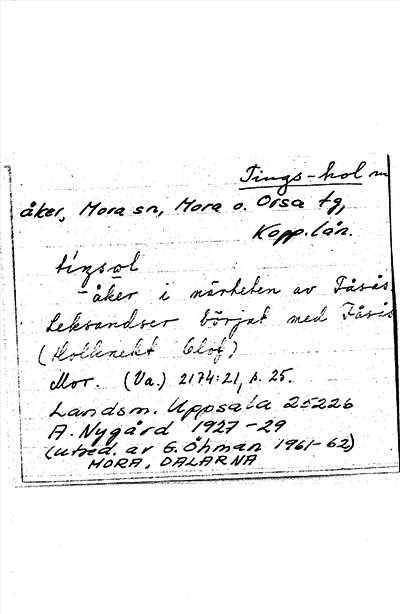 Tings-hol m
åker, Mora sn, Mora o. Orsa tg,
Kopp. län.
tı́ŋsol
- åker i närheten av Fåsås
Leksandser börjat med Fåsås
(Holknekt Olof)
Mor. (Va.) 2174:21, s. 25.
Landsm. Uppsala 25226
A. Nygård 1927-29
(utred. av G. Öhman 1961-62)
MORA, DALARNA